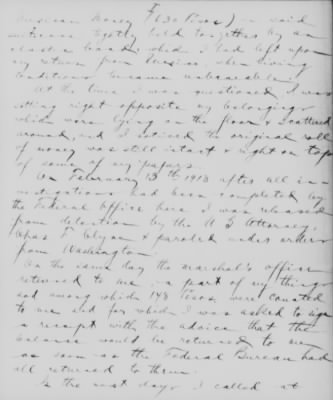 Mexican Money $ (630 Pesos) in said
suitcase tightly held together by an
elastic band, which I had left upon
my return from Mexico, when living
conditions became unbearable.
At the time I was questioned, I was
sitting right opposite my belongings
which were lying on the floor & scattered
around, and I noticed the original roll
of money was still intact & right on top
of some of my papers.
On February 13th 1918 after all in-
vestigations had been completed by
the Federal Office here I was released
from detention by the U S Attorney,
Chas F Clyne & paroled under orders
from Washington.
On the same day the marshal's office
returned to me a part of my things
and among which 148 Pesos were counted
to me and for which I was asked to sign
a receipt with the advice that the
balance would be returned to me
as soon as the Federal Bureau had
all returned to them.
In the next days I called at